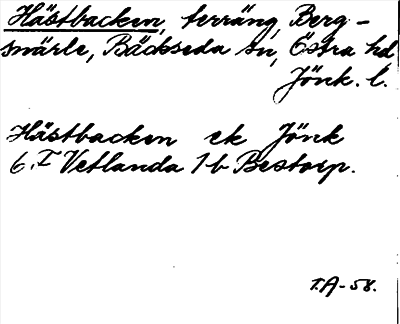 Hästbacken, terräng, Berg-
snärle, Bäckseda sn, Östra hd
Jönk. l.
Hästbacken ek Jönk
6.I Vetlanda 1b Bestorp.
T.A-58.